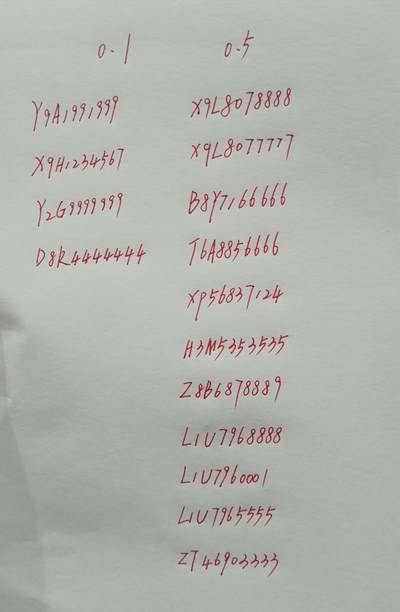 0.1
Y9A1991999
X9H1234567
Y2G9999999
D8R4444444
0.5
X9L8078888
X9L8077777
B8Y7166666
T6A8856666
XP56837124
H3M5353535
Z8B6878889
LIU7968888
LIU7960001
LIU7965555
ZT46903333